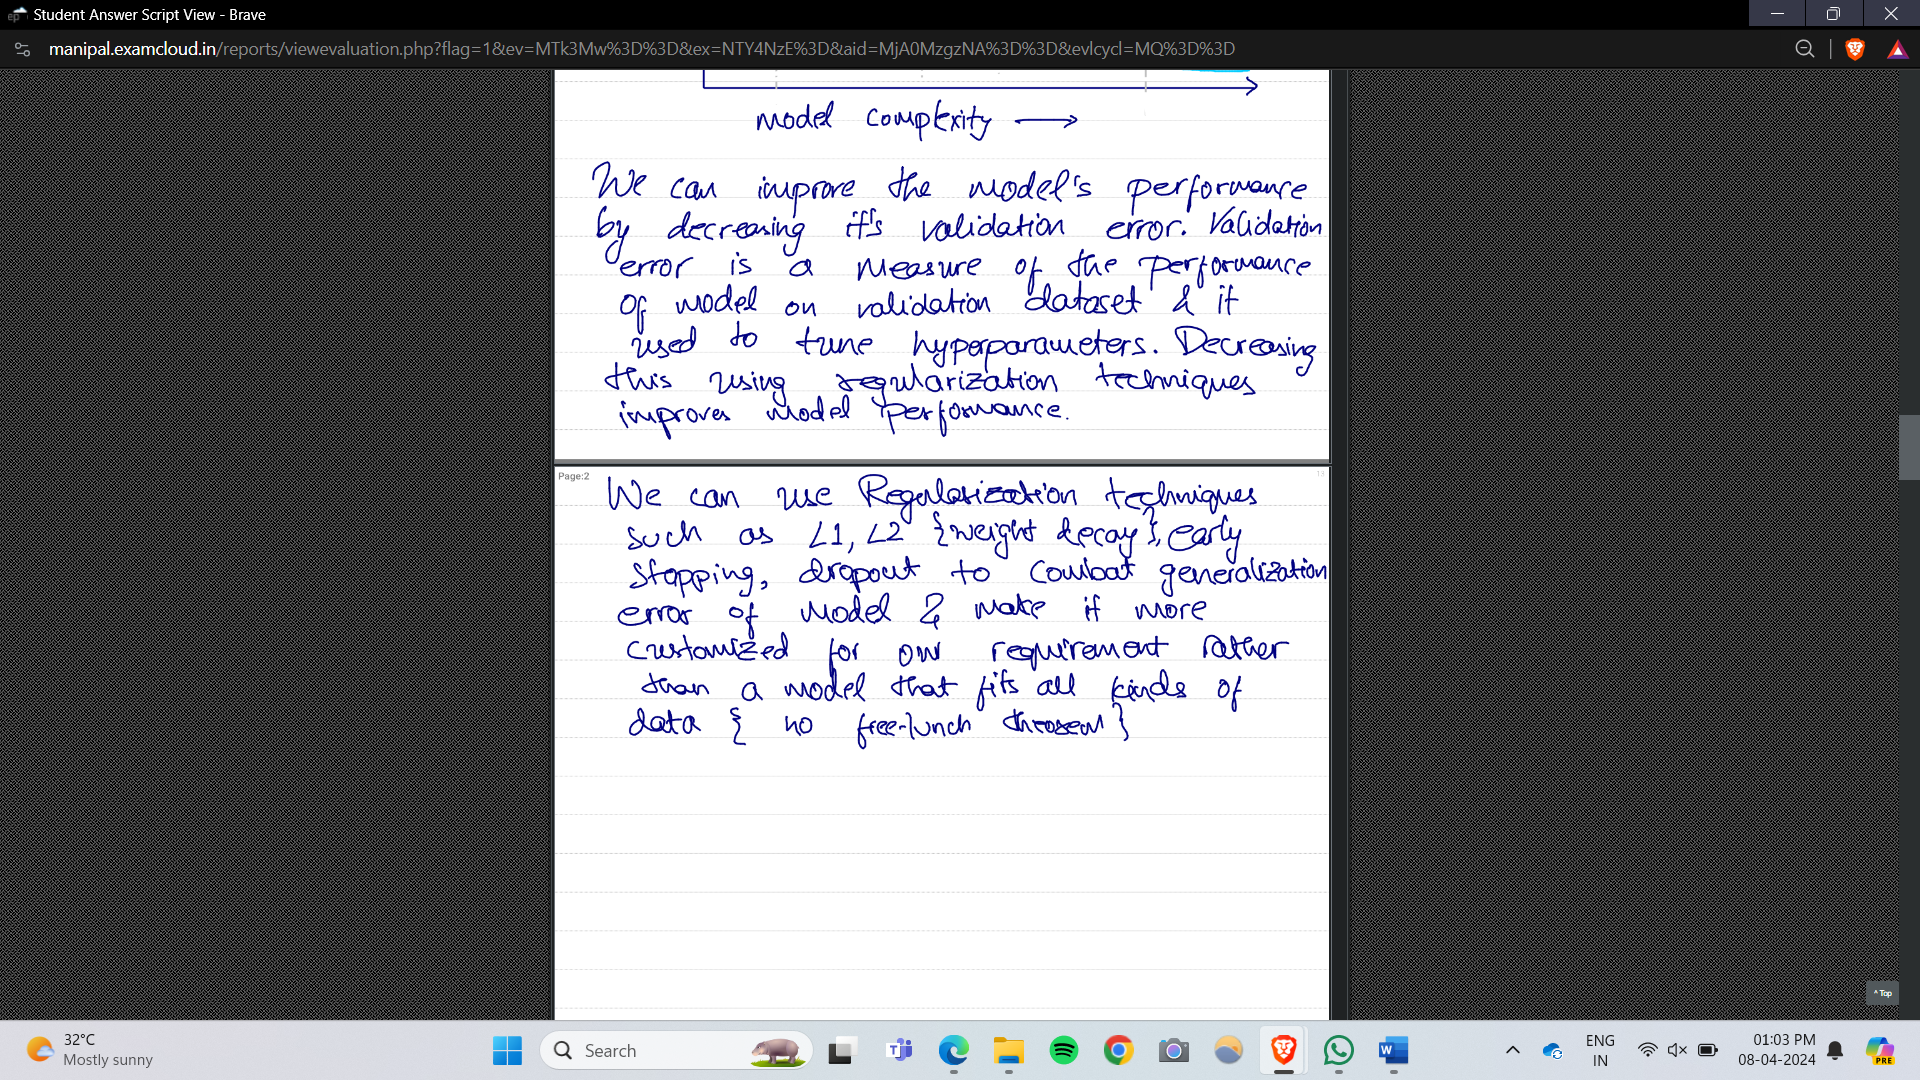 Student Answer Script View - Brave
manipal.examcloud.in/reports/viewevaluation.php?flag=1&ev=MTk3Mw%3D%3D&ex=NTY4NzE%3D&aid=MjA0MzgzNA%3D%3D&evlcycl=MQ%3D%3D
model complexity →
We can improve the model's performance
by decreasing it's validation error. Validation
error is a measure of the performance
of model on validation dataset & it
used to tune hyperparameters. Decreasing
this using regularization techniques
improves model performance.
Page:2
We can use Regularization techniques
such as L1, L2 {weight decay}, early
stopping, dropout to combat generalization
error of model & make it more
customized for our requirement rather
than a model that fits all kinds of
data { no free-lunch theorem }
^ Top
32°C
Mostly sunny
Search
ENG
IN
01:03 PM
08-04-2024
PRE